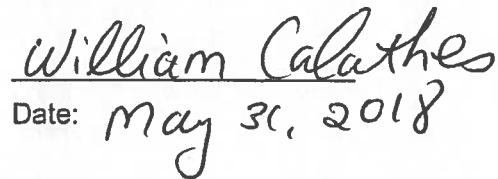 William Calathes
Date: May 31, 2018